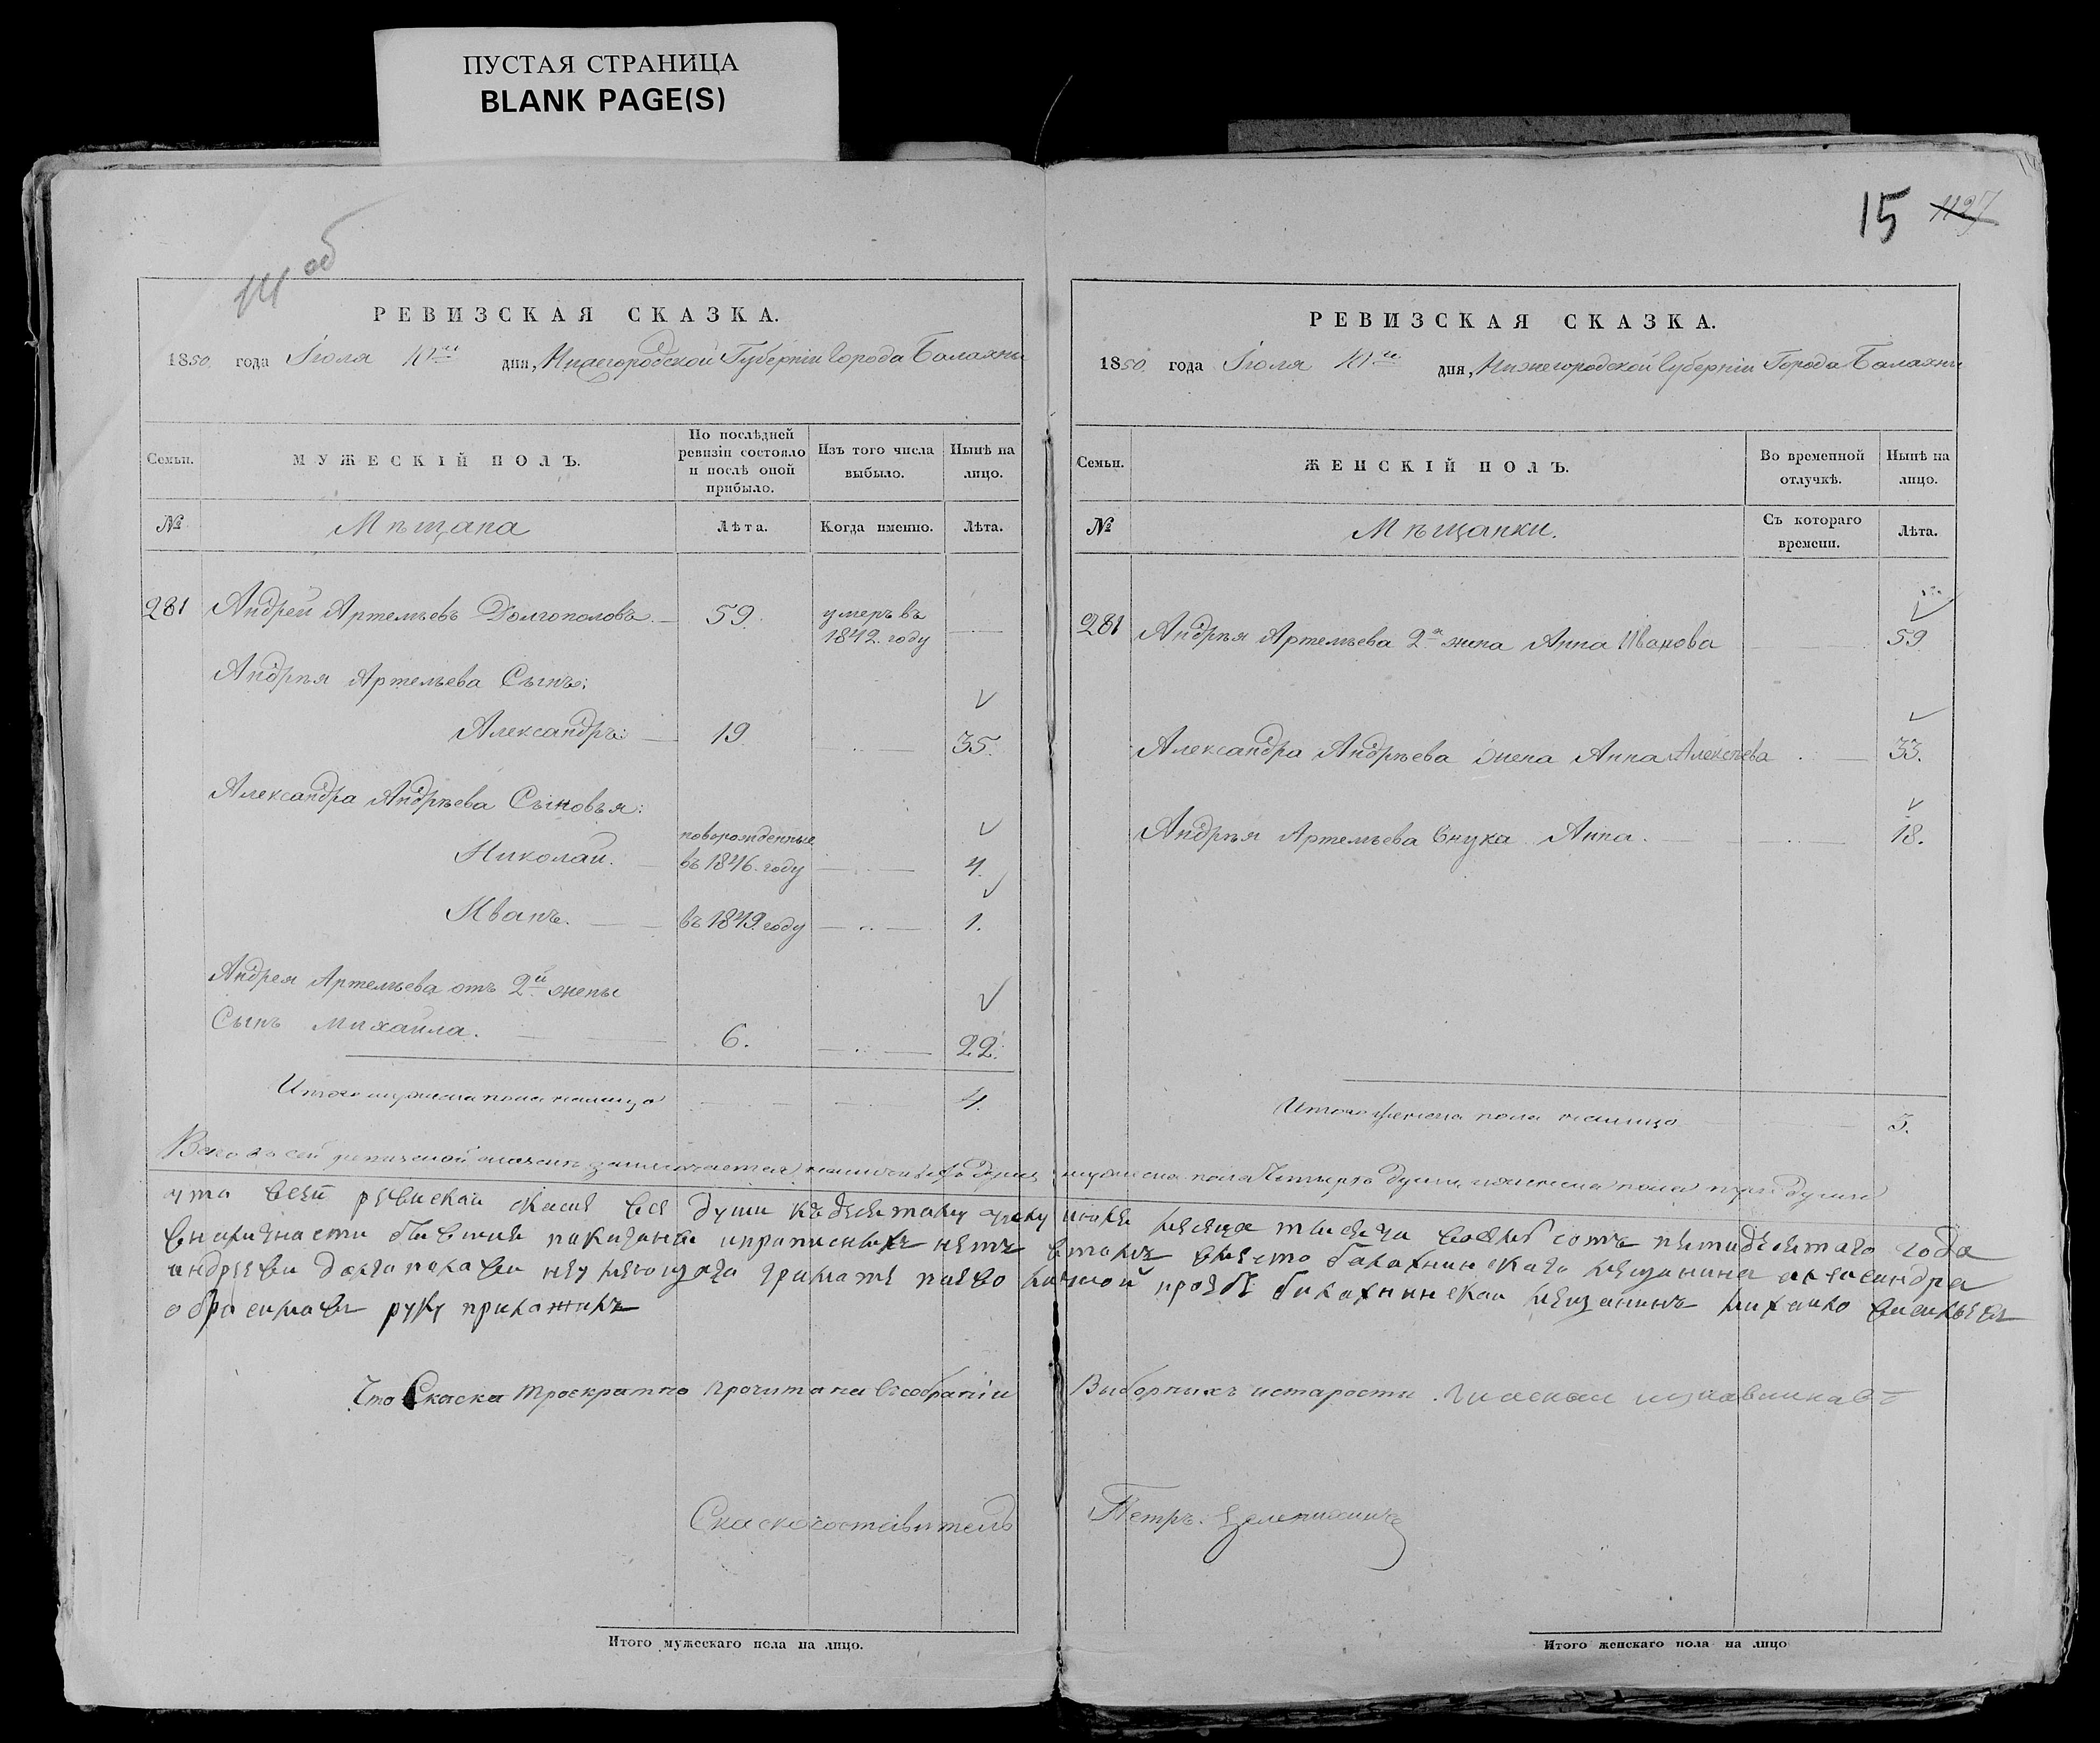 ПУСТАЯ СТРАНИЦА
BLANK PAGE(S)
14 об
РЕВИЗСКАЯ СКАЗКА.
1850. года Іюля дня, Нижегородской Губерніи города Балахны
Семьи.
МУЖЕСКІЙ ПОЛЪ.
По послѣдней ревизіи состояло и послѣ оной прибыло.
Изъ того числа выбыло.
Нынѣ на лицо.
№
Мѣщана
Лѣта.
Когда именно.
Лѣта.
281 Андрей Артемьевъ Долгополовъ 59. умеръ въ 1842. году
Андрѣя Артемьева Сынъ:
Александръ: 19 35.
Александра Андрѣева Сыновья:
новорожденные
Николай. въ 1846. году 4.
Иванъ. въ 1849. году 1.
Андрея Артемьева отъ 2й жены
Сынъ Михайла. 6. 22.
Итого мужеска пола налицо 4.
15 1127
РЕВИЗСКАЯ СКАЗКА.
1850. года Іюля дня, Нижегородской Губерніи Города Балахны
Семьи.
ЖЕНСКІЙ ПОЛЪ.
Во временной отлучкѣ.
Нынѣ на лицо.
№
Мѣщанки.
Съ котораго времени.
Лѣта.
281 Андрѣя Артемьева 2я жина Анна Иванова 59
Александра Андрѣева жена Анна Алексѣева 33.
Андрѣя Артемьева внука Анна. 18.
Итого женска пола налицо 3.
Всего въ сей ревизской сказкѣ заключается наличныхъ душъ мужеска пола Четыре души, женска пола три души
что всей ревиской скаске все души къ десятому числу июля месяца тысеча восемь сотъ пятидесятаго года
вналичности бывшия показаны ипрописныхъ нетъ втомъ вместо балахнинскаго мещанина александра
андреева далгополова неумеющаго грамате поево личной прозбе балахнинскай мещанинъ михайло васильевъ
руку приложилъ
Что Скаска троекратно прочитана всобраніи Выборныхъ истарости
Скаскосоставитель Петръ
Итого мужескаго пола на лицо.
Итого женскаго пола на лицо